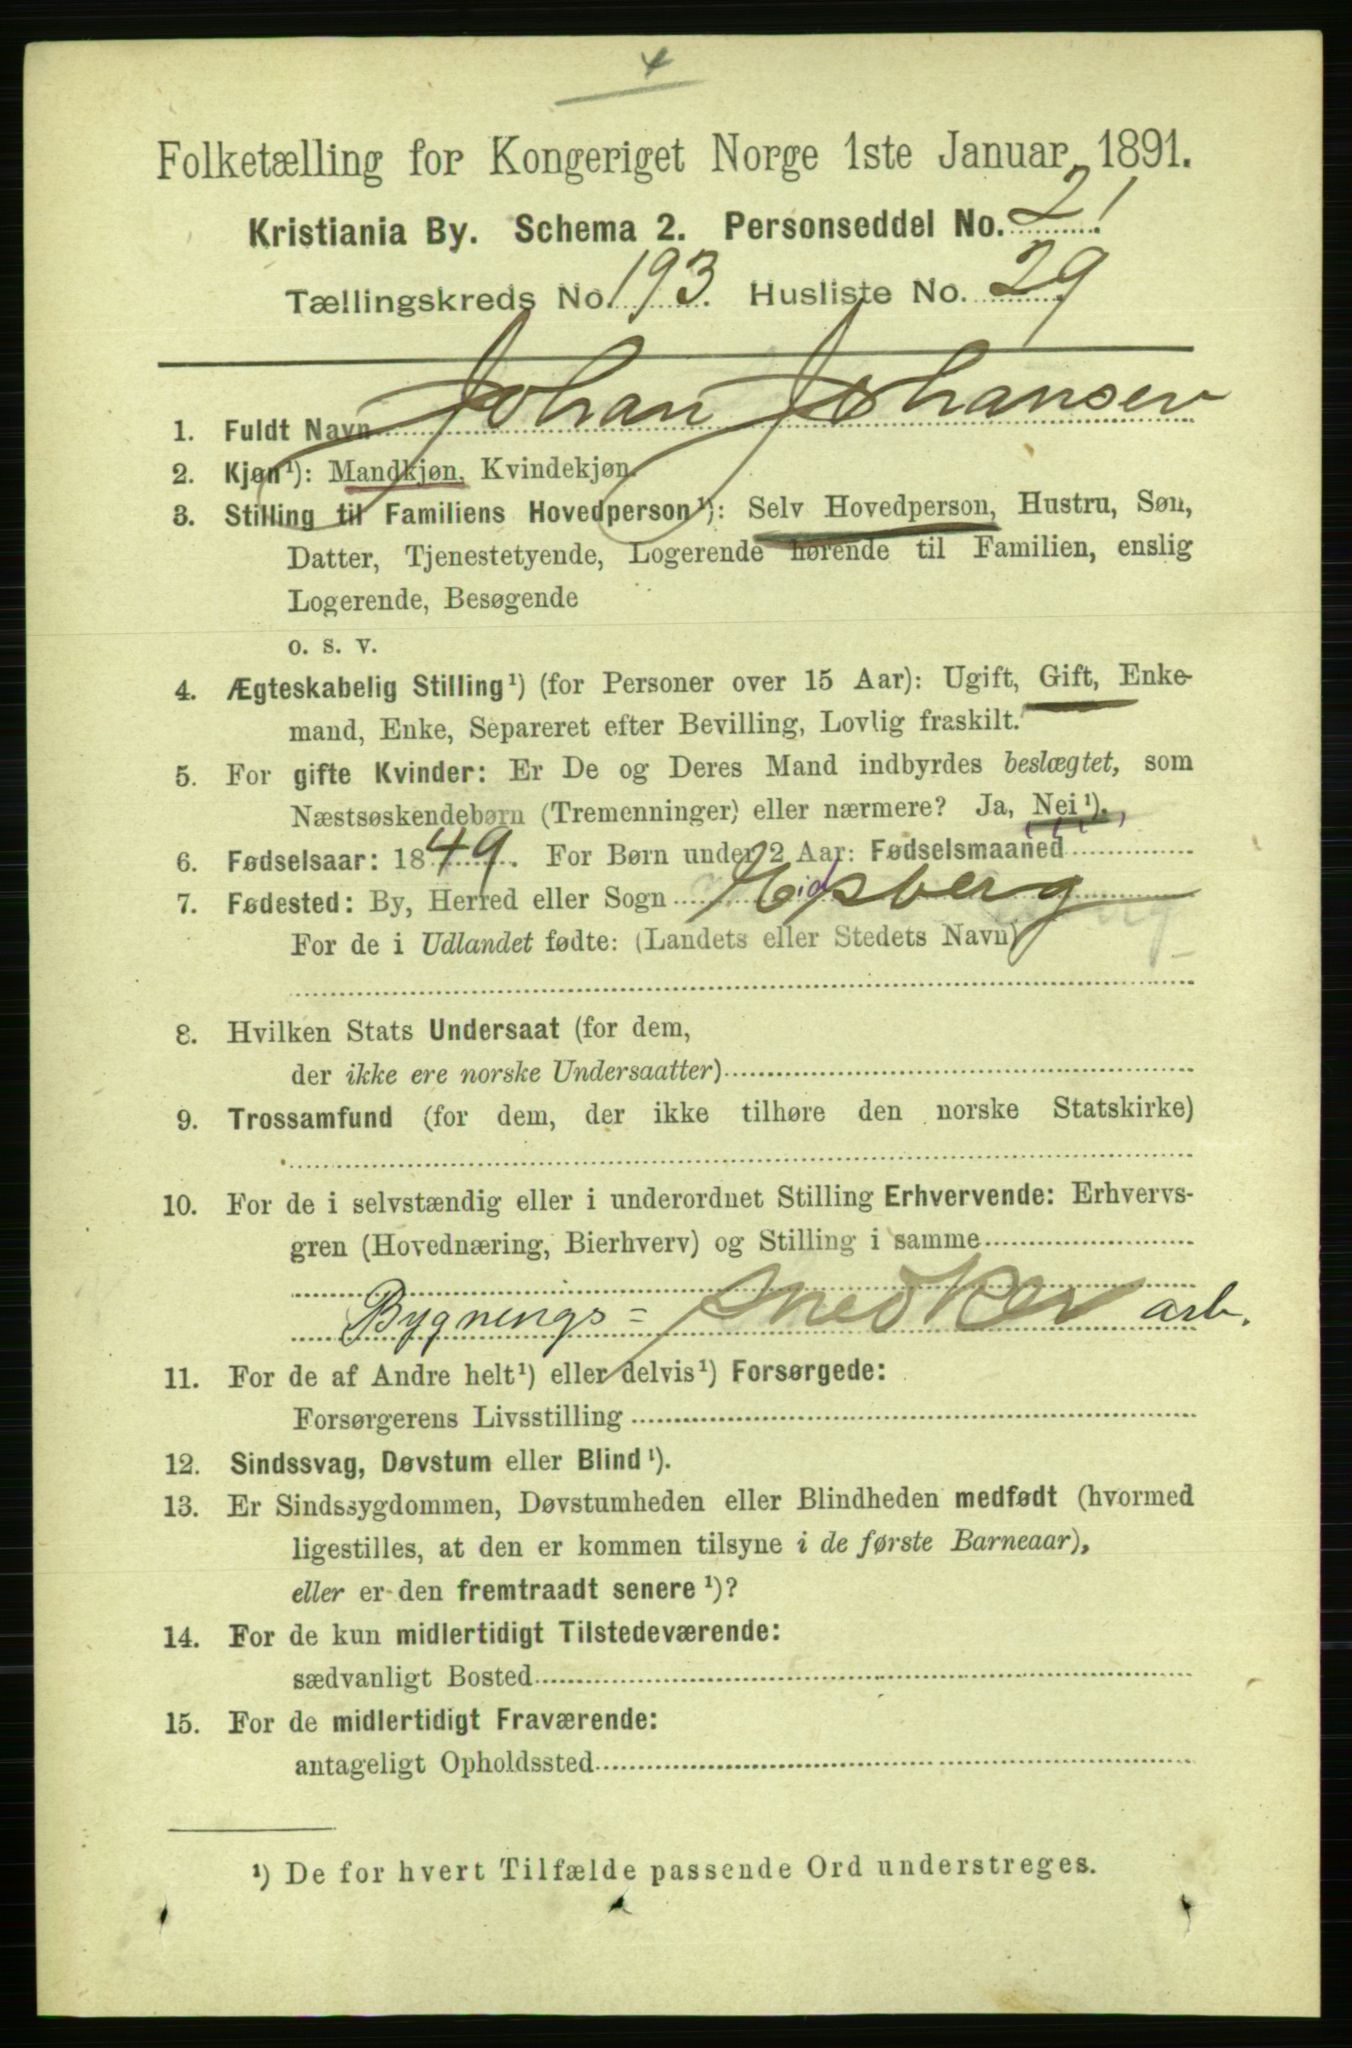 4
Folketælling for Kongeriget Norge 1ste Januar 1891.
Kristiania By. Schema 2. Personseddel No. 21
Tællingskreds No. 193. Husliste No. 29
1. Fuldt Navn Johan Johansen
2. Kjøn¹): Mandkjøn, Kvindekjøn.
3. Stilling til Familiens Hovedperson¹): Selv Hovedperson, Hustru, Søn,
Datter, Tjenestetyende, Logerende hørende til Familien, enslig
Logerende, Besøgende
o. s. v.
4. Ægteskabelig Stilling¹) (for Personer over 15 Aar): Ugift, Gift, Enke-
mand, Enke, Separeret efter Bevilling, Lovlig fraskilt.
5. For gifte Kvinder: Er De og Deres Mand indbyrdes beslægtet, som
Næstsøskendebørn (Tremenninger) eller nærmere? Ja, Nei¹).
6. Fødselsaar: 1849. For Børn under 2 Aar: Fødselsmaaned
7. Fødested: By, Herred eller Sogn
For de i Udlandet fødte: (Landets eller Stedets Navn)
8. Hvilken Stats Undersaat (for dem,
der ikke ere norske Undersaatter)
9. Trossamfund (for dem, der ikke tilhøre den norske Statskirke)
10. For de i selvstændig eller i underordnet Stilling Erhvervende: Erhvervs-
gren (Hovednæring, Bierhverv) og Stilling i samme
Bygnings= snedker arb.
11. For de af Andre helt¹) eller delvis¹) Forsørgede:
Forsørgerens Livsstilling
12. Sindssvag, Døvstum eller Blind¹).
13. Er Sindssygdommen, Døvstumheden eller Blindheden medfødt (hvormed
ligestilles, at den er kommen tilsyne i de første Barneaar),
eller er den fremtraadt senere¹)?
14. For de kun midlertidigt Tilstedeværende:
sædvanligt Bosted
15. For de midlertidigt Fraværende:
antageligt Opholdssted
¹) De for hvert Tilfælde passende Ord understreges.